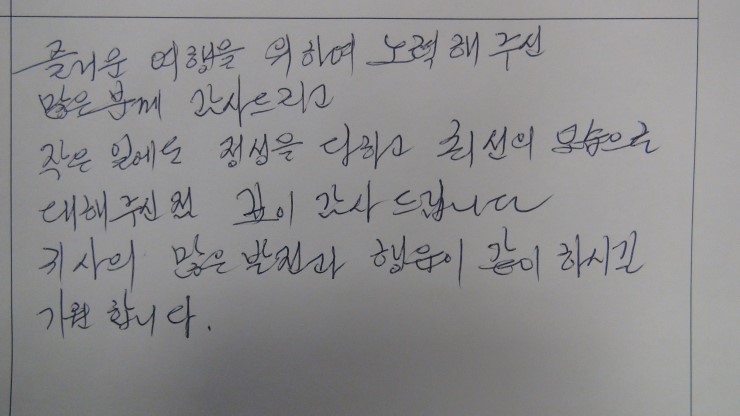 즐거운 여행을 위하여 노력해 주신
많은 분께 감사드리고
작은 일에도 정성을 다하고 최선의 모습으로
대해주신 점 깊이 감사 드립니다
귀사의 많은 발전과 행운이 같이 하시길
기원 합니다.